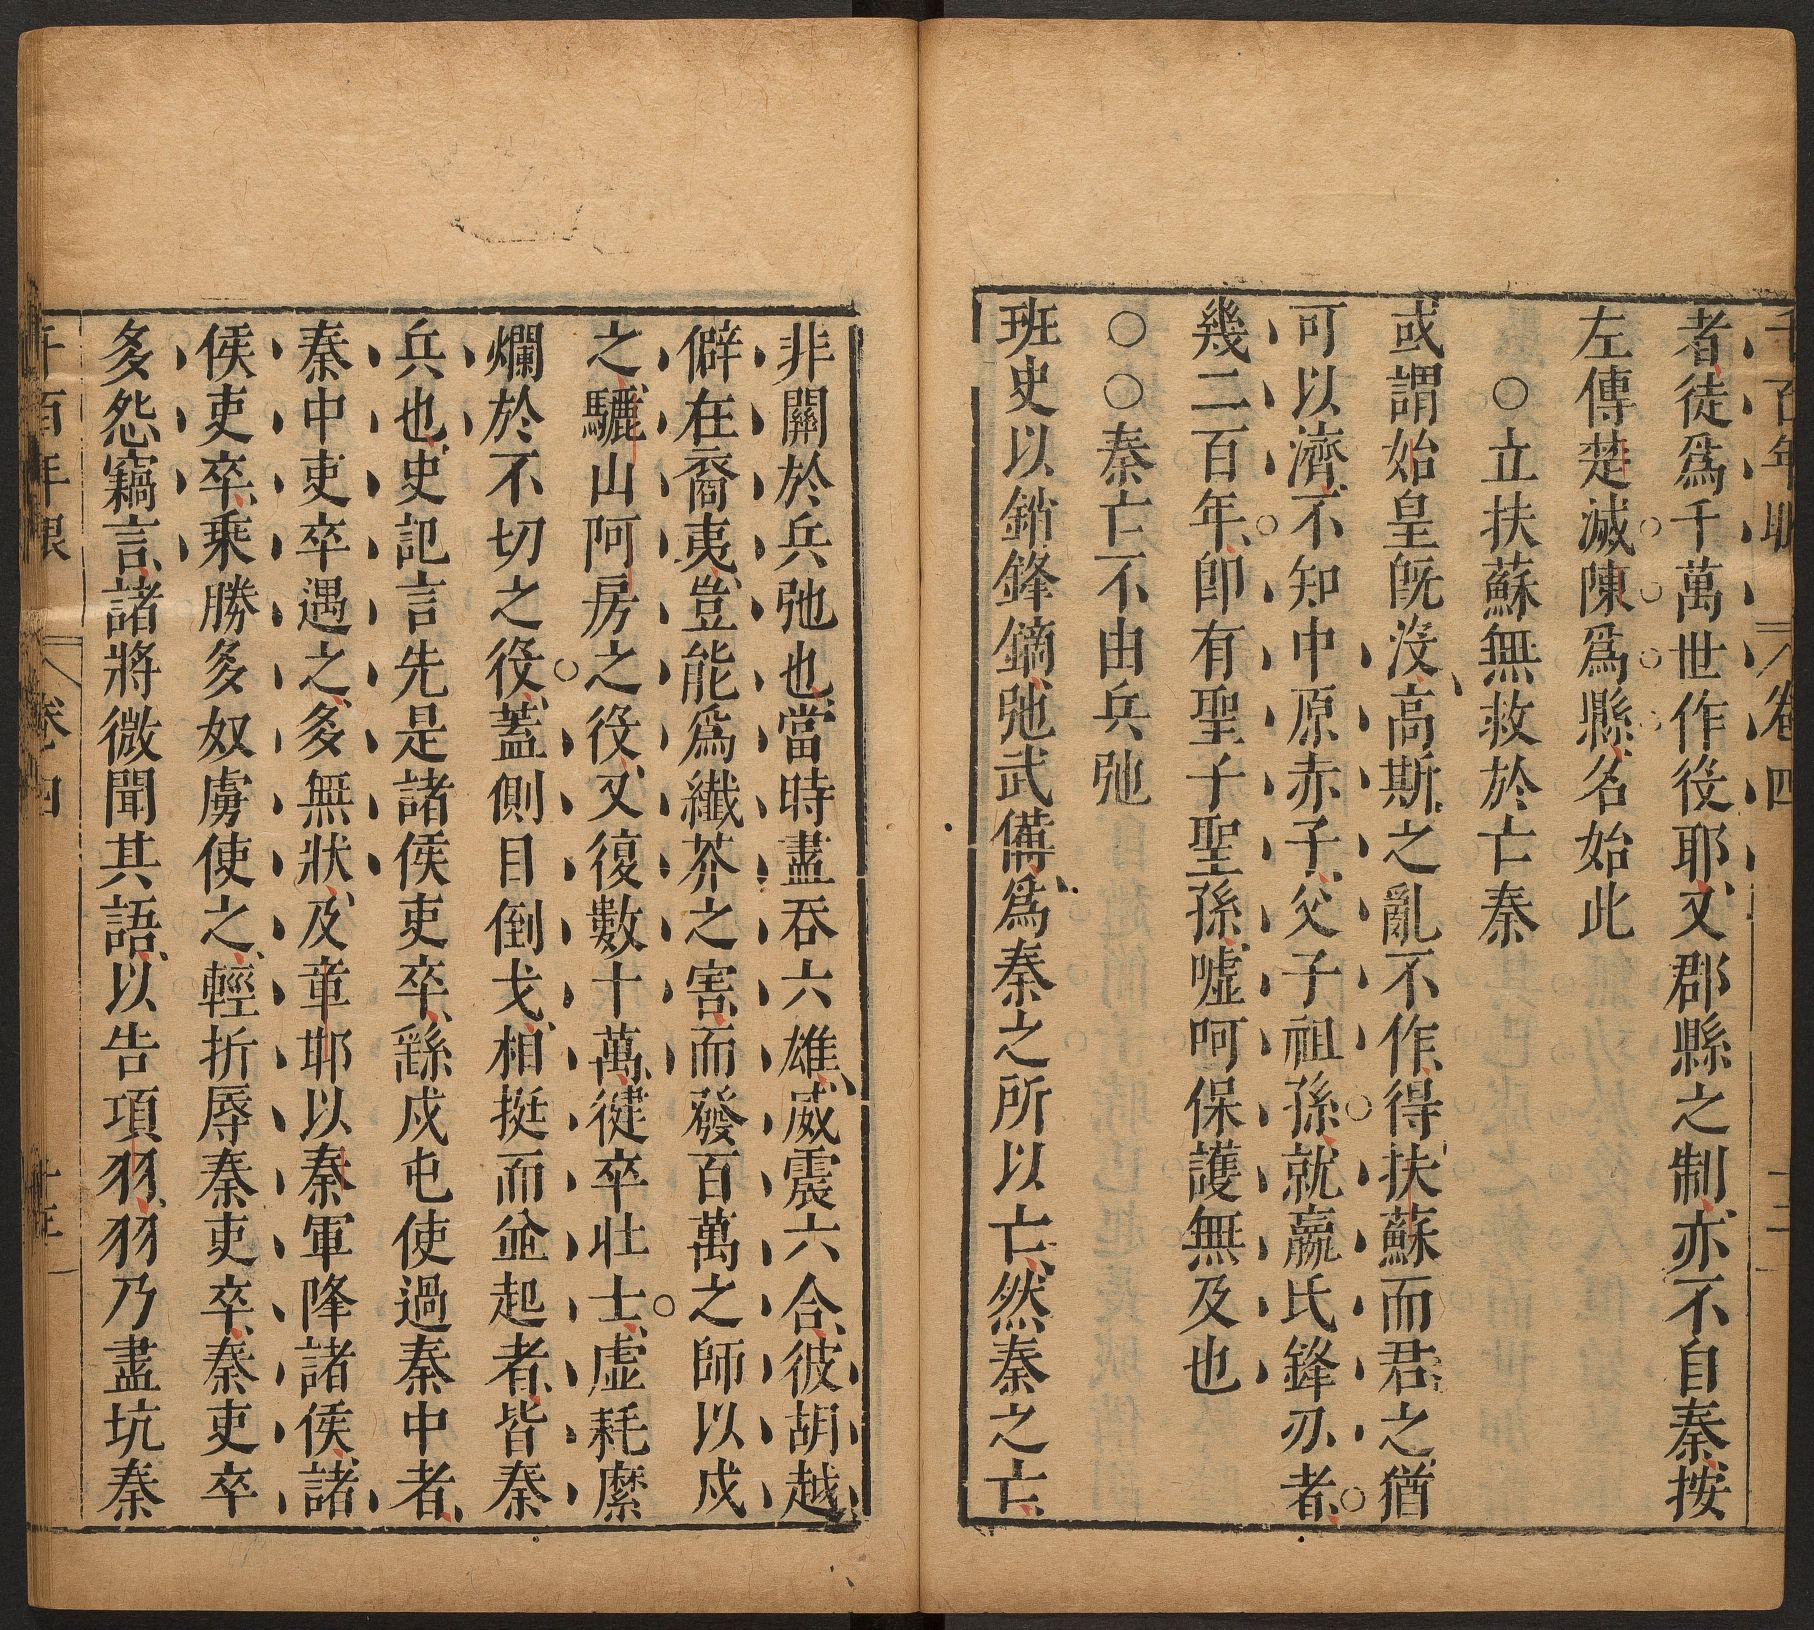 千百年眼 卷四
者徒爲千萬世作役耶又郡縣之制亦不自秦按
左傳楚滅陳爲縣名始此
○立扶蘇無救於亡秦
或謂始皇旣沒高斯之亂不作得扶蘇而君之猶
可以濟不知中原赤子父子祖孫就嬴氏鋒刃者
幾二百年卽有聖子聖孫噓呵保護無及也
○○秦亡不由兵弛
班史以銷鋒鏑弛武備爲秦之所以亡然秦之亡
非關於兵弛也當時盡吞六雄威震六合彼胡越
僻在裔夷豈能爲纖芥之害而發百萬之師以戍
之驪山阿房之役又復數十萬健卒壯士虛耗縻
爛於不切之役蓋側目倒戈相挺而並起者皆秦
兵也史記言先是諸侯吏卒繇戍屯使過秦中者
秦中吏卒遇之多無狀及章邯以秦軍降諸侯諸
侯吏卒乘勝多奴虜使之輕折辱秦吏卒秦吏卒
多怨竊言諸將微聞其語以告項羽羽乃盡坑秦
千百年眼 卷四